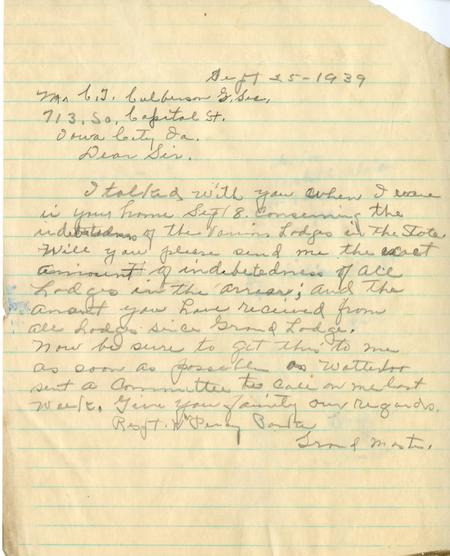 Sept 25-1939
Mr C.T. Culberson G. Sec,
713, So, Capitol St.
Iowa City Ia.
Dear Sir.
I talked with you when I were
in your home Sept 8. Concerning the
indebtedness of the Various Lodges in the State
Will you please send me the exact
amount of indebetedness of all
Lodges in the arrears; and the
amount you have received from
all Lodges since Grand Lodge.
Now be sure to get this to me
as soon as possible as Watterloo
sent a Committee to call on me last
Week. Give you family our regards.
Respt. Percy
Grand Master.